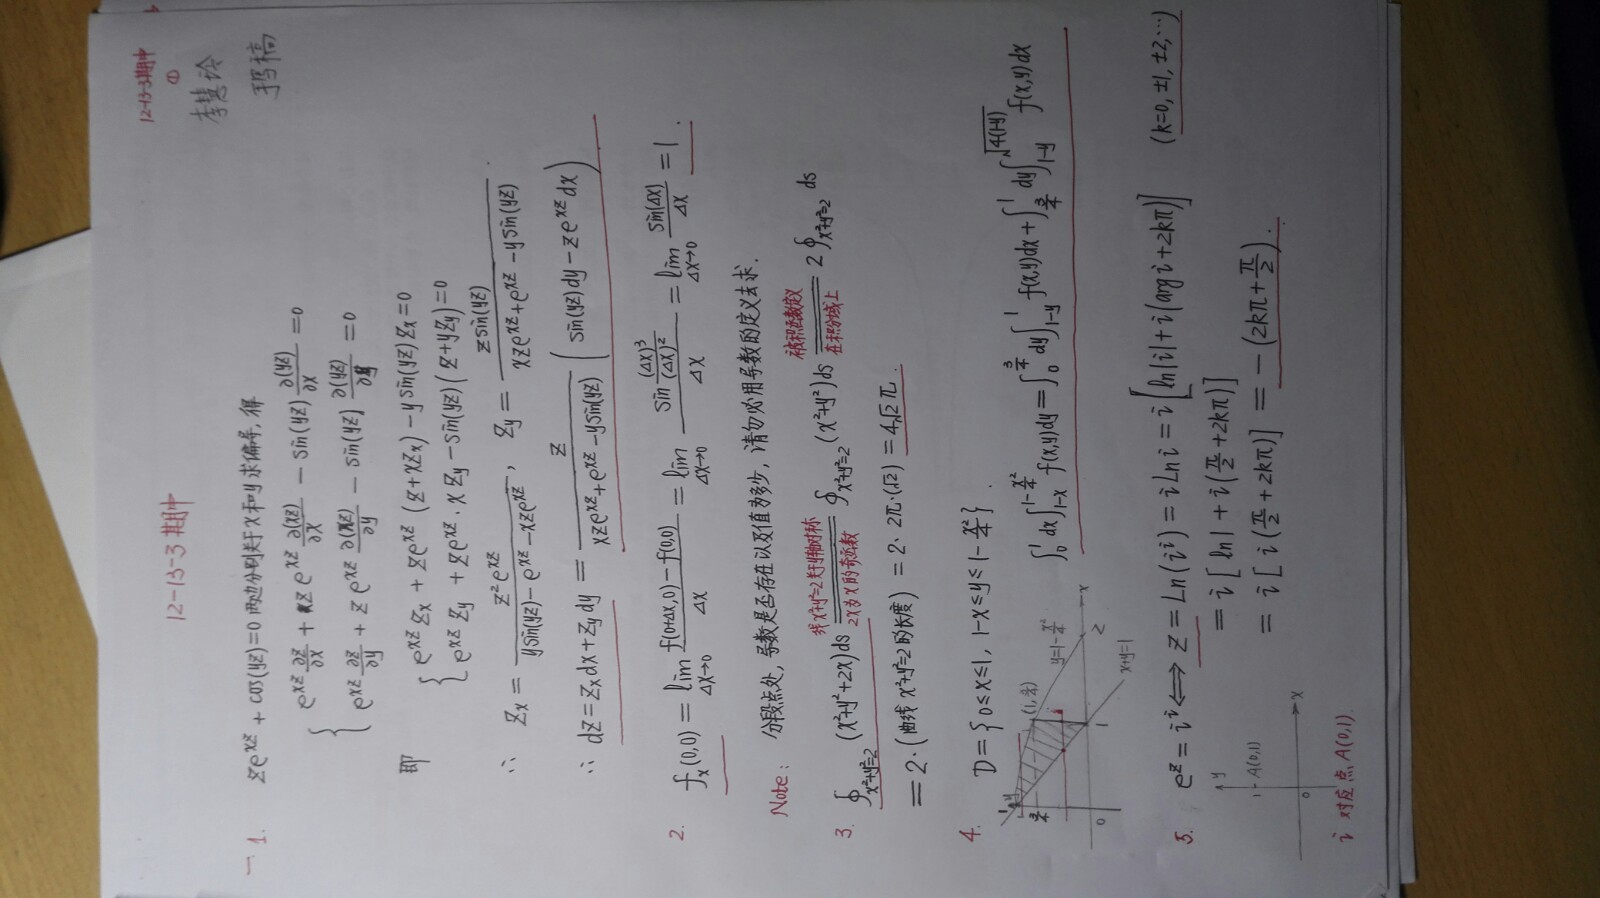 12-13-3期中
①
李慧玲
手稿
12-13-3期中
一. 1. ze^{xz} + cos(yz) = 0 两边分别关于x和y求偏导, 得
{ e^{xz} ∂z/∂x + xz e^{xz} ∂(xz)/∂x - sin(yz) ∂(yz)/∂x = 0
e^{xz} ∂z/∂y + z e^{xz} ∂(xz)/∂y - sin(yz) ∂(yz)/∂y = 0
即 { e^{xz} z_x + ze^{xz} (z + xz_x) - y sin(yz) z_x = 0
e^{xz} z_y + ze^{xz} · x z_y - sin(yz) (z + yz_y) = 0
∴ z_x = z²e^{xz} / (y sin(yz) - e^{xz} - xze^{xz}) , z_y = z sin(yz) / (xze^{xz} + e^{xz} - y sin(yz)) .
∴ dz = z_x dx + z_y dy = z / (xze^{xz} + e^{xz} - y sin(yz)) ( sin(yz) dy - ze^{xz} dx )
2. f_x(0,0) = lim_{Δx→0} (f(0+Δx,0) - f(0,0)) / Δx = lim_{Δx→0} (sin (Δx)³/(Δx)²) / Δx = lim_{Δx→0} sin(Δx)/Δx = 1 .
Note: 分段点处, 导数是否存在以及值为多少, 请务必用导数的定义去求.
线x²+y²=2关于y轴对称 被积函数定义
3. ∮_{x²+y²=2} (x²+y²+2x)ds = ∮_{x²+y²=2} (x²+y²)ds = 2∮_{x²+y²=2} ds
2x为x的奇函数 在积分线上
= 2·(曲线x²+y²=2的长度) = 2·2π·(√2) = 4√2π .
4. D = {0≤x≤1, 1-x≤y≤1-x²/4} .
∫₀¹ dx ∫_{1-x}^{1-x²/4} f(x,y)dy = ∫₀^{3/4} dy ∫_{1-y}^1 f(x,y)dx + ∫_{3/4}^1 dy ∫_{1-y}^{√4(1-y)} f(x,y)dx
y
1
3/4
(1, 3/4)
y=1-x²/4
0
1
2
x
x+y=1
5. e^z = i^i ⟺ z = Ln(i^i) = i Ln i = i [ln|i| + i(arg i + 2kπ)] (k=0, ±1, ±2, ⋯)
= i [ ln1 + i(π/2 + 2kπ)]
= i [ i(π/2 + 2kπ)] = -(2kπ + π/2) .
y
1 - A(0,1)
0
x
i 对应点 A(0,1).